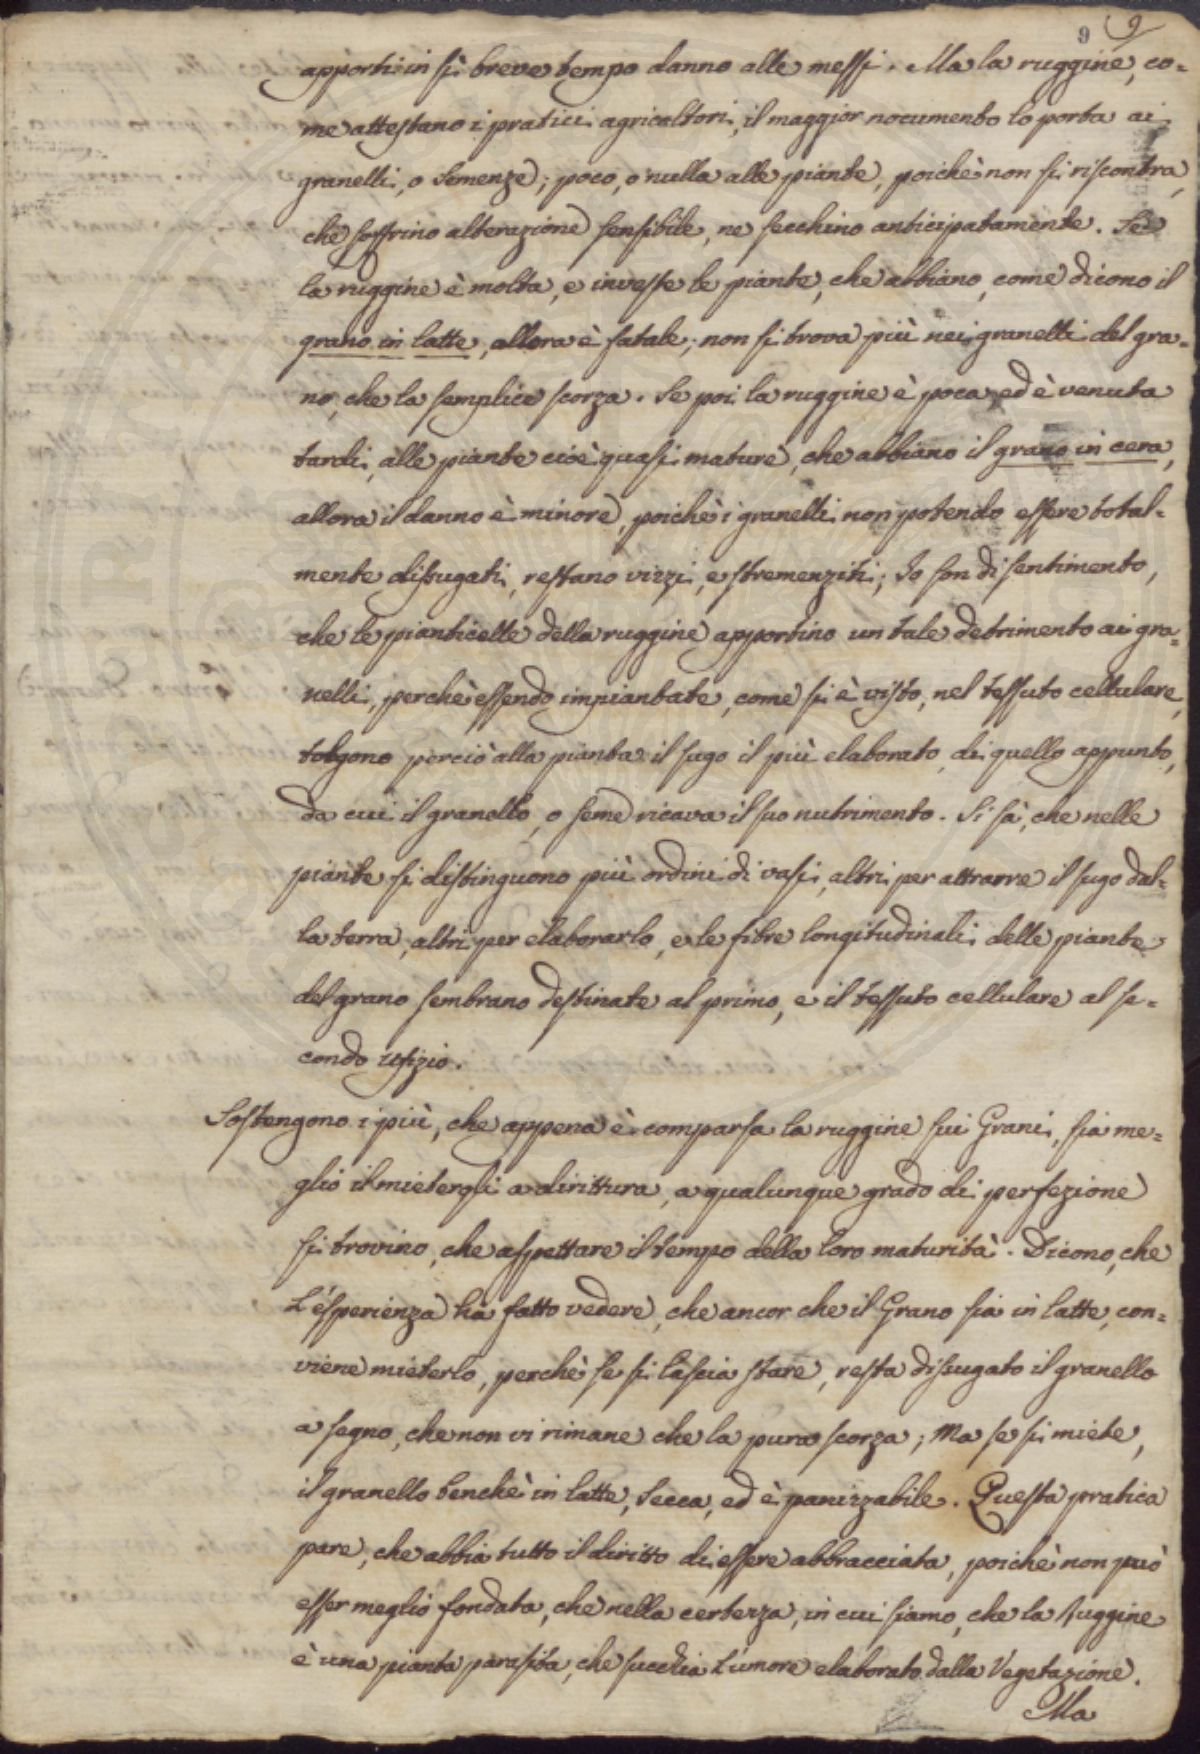 9 9
apporti in sì breve tempo danno alle messi. Ma la ruggine, co=
me attestano i pratici agricoltori, il maggior nocumento lo porta ai
granelli, o Semenze; poco, o nulla alle piante, poichè non si riscontra,
che soffrino alterazione sensibile, ne secchino anticipatamente. Se
la ruggine è molta, e investe le piante, che abbiano, come dicono il
grano in latte, allora è fatale; non si trova più nei granelli del gra=
no, che la semplice scorza. Se poi la ruggine è poca, ed è venuta
tardi, alle piante cioè quasi mature, che abbiano il grano in cera,
allora il danno è minore, poichè i granelli non potendo essere total=
mente disugati, restano vizzi, e stremenziti; Io son di sentimento,
che le pianticelle della ruggine apportino un tale detrimento ai gra=
nelli, perchè essendo impiantate, come si è visto, nel tessuto cellulare,
tolgono perciò alla pianta il sugo il più elaborato, di quello appunto,
da cui il granello, o seme ricava il suo nutrimento. Si sà, che nelle
piante si distinguono più ordini di vasi, altri per attrarre il sugo dal=
la terra, altri per elaborarlo, e le fibre longitudinali delle piante
del grano sembrano destinate al primo, e il tessuto cellulare al se=
condo ufizio.
Sostengono i più, che appena è comparsa la ruggine sui Grani, sia me=
glio il mietergli a dirittura, a qualunque grado di perfezione
si trovino, che aspettare il tempo della loro maturità. Dicono, che
L'esperienza hà fatto vedere, che ancor che il Grano sia in latte, con=
viene mieterlo, perchè se si lascia stare, resta disugato il granello
a segno, che non vi rimane che la pura scorza; Ma se si miete,
il granello benchè in latte, secca, ed è panizzabile. Questa pratica
pare, che abbia tutto il diritto di essere abbracciata, poichè non può
esser meglio fondata, che nella certezza, in cui siamo, che la Ruggine
è una pianta parasita, che succhia L'umore elaborato dalla Vegetazione.
Ma